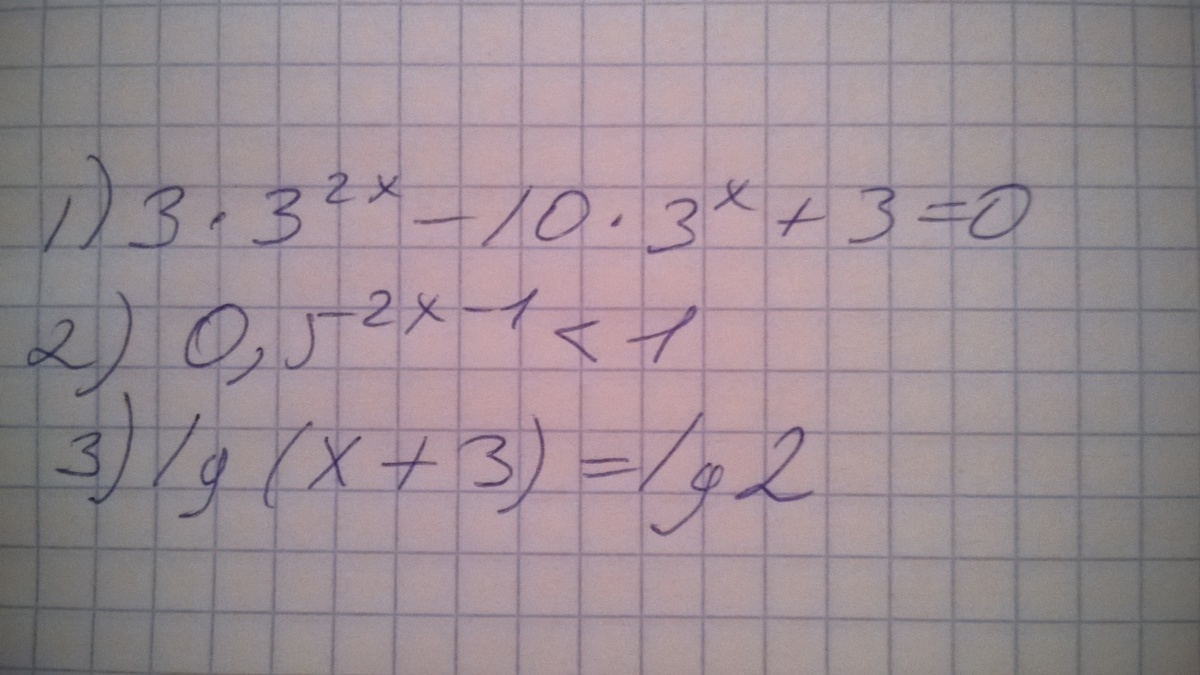 1) 3 · 3^{2x} – 10 · 3^x + 3 = 0
2) 0,5^{-2x-1} < 1
3) lg (x + 3) = lg 2